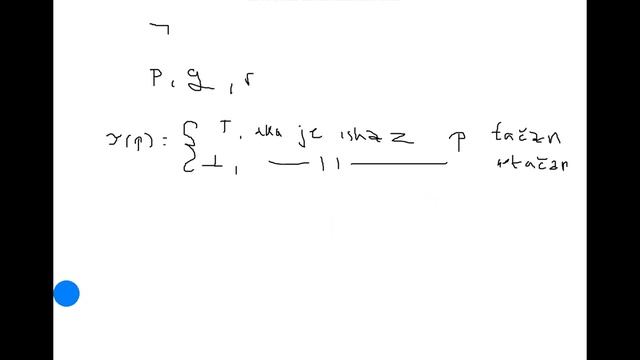 ¬
p, q, r
τ(p) = { ⊤, ako je iskaz p tačan
⊥, —— 11 —— netačan